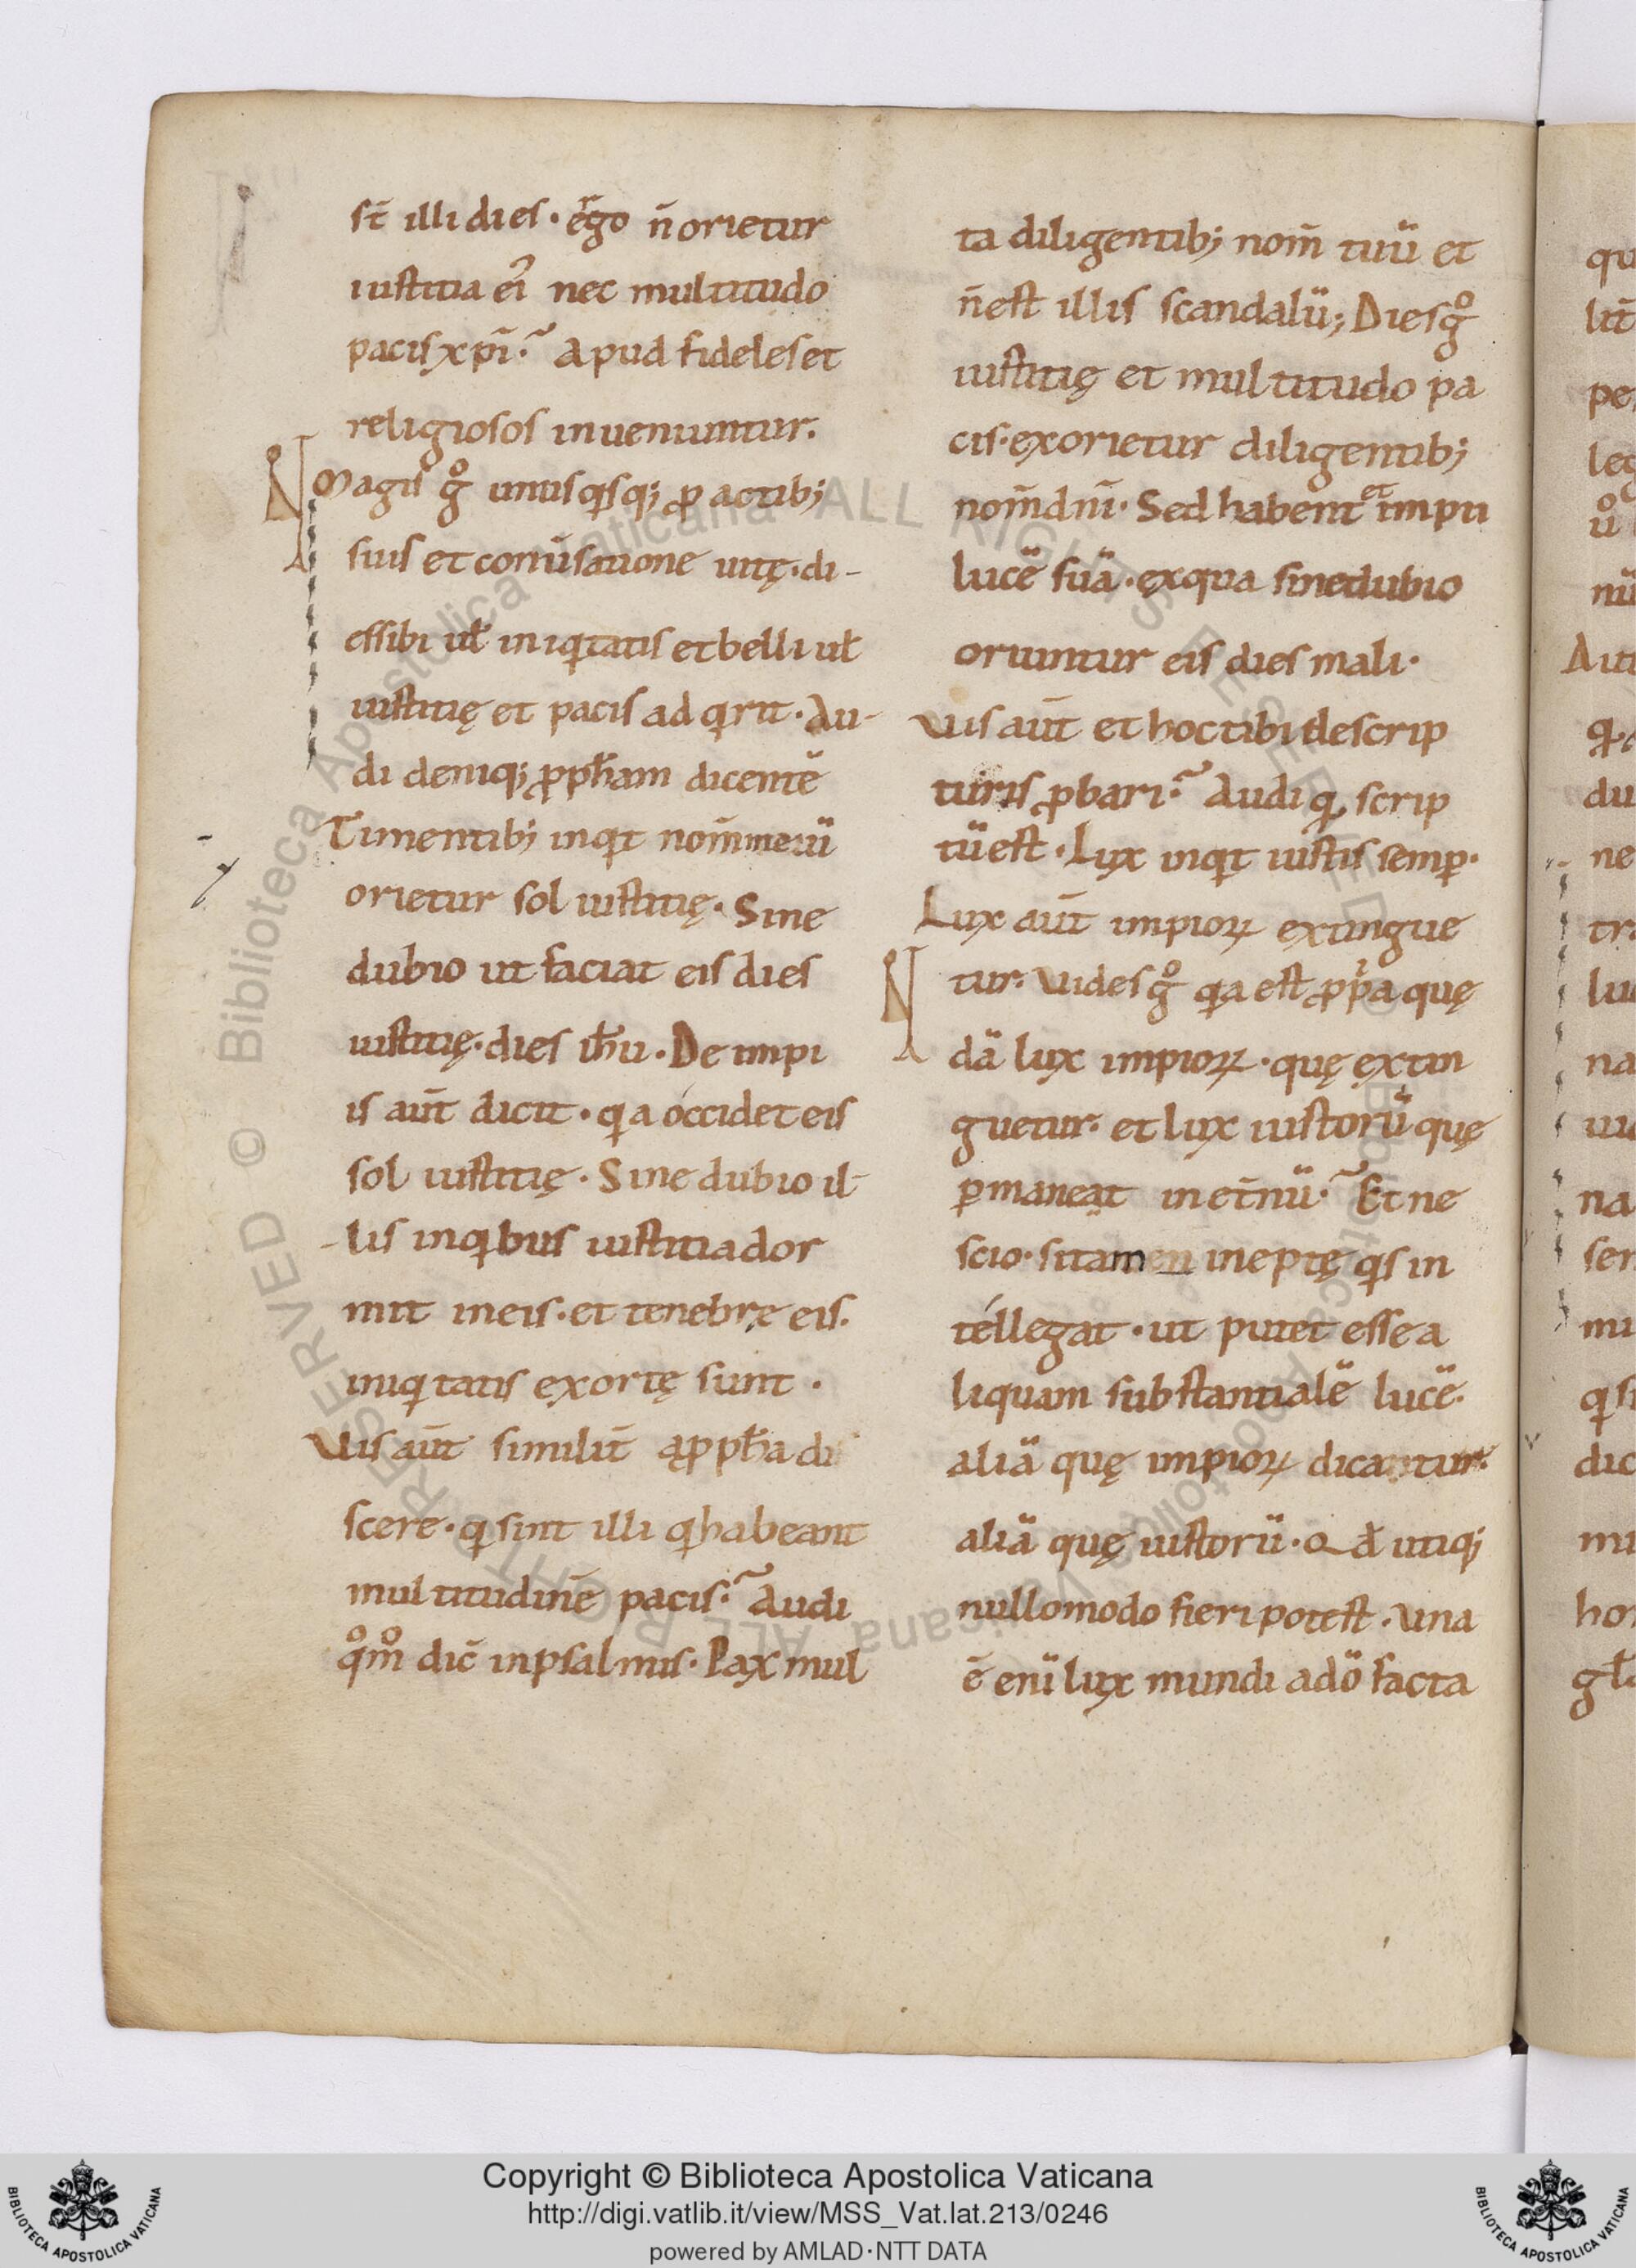 st̄ illi dies. ergo n̄ orietur
iustitia ei nec multitudo
pacis xpi. apud fideles et
religiosos inueniuntur.
Magis g̊ unusqsq; ꝓ actibꝫ
suis et conuersatione uitę. di-
es sibi uł iniqtatis et belli uł
iustitię et pacis adqrit. Au-
di deniq; ꝓpħam dicentē
Timentibꝫ inqt nom̄ meū
orietur sol iustitię. Sine
dubio ut faciat eis dies
iustitię. dies iħu. De impi
is aut̄ dicit. qa occidet eis
sol iustitię. Sine dubio il-
lis inqbus iustitia dor
mit in eis. et tenebrę eis.
iniqtatis exortę sunt.
Vis aut̄ similit̄ a ꝓpħa di
scere. q sint illi q habeant
multitudinē pacis. Audi
q̊m̊ dic̄ in psalmis. Pax mul
ta diligentibꝫ nom̄ tuū et
n̄ est illis scandalū; Dies g̊
iustitię et multitudo pa
cis. exorietur diligentibꝫ
nom̄ dn̄i. Sed habent et impii
lucē suā. ex qua sine dubio
oriuntur eis dies mali.
Vis aut̄ et hoc tibi de scrip
turis ꝓbari. Audi q scrip
tū est. Lux inqt iustis semꝑ.
Lux aut̄ impioꝝ extingue
tur. Vides g̊ qa est ꝓpria quę
dā lux impioꝝ. quę extin
guetur. et lux iustorū quę
ꝑmaneat in et̄nū. Et ne
scio. si tamen ineptę qs in
tellegat. ut putet esse a
liquam substantialē lucē.
aliā quę impioꝝ dicantur.
aliā quę iustorū. Qd̄ utiq;
nullomodo fieri potest. Una
ē enī lux mundi a dō facta
Copyright © Biblioteca Apostolica Vaticana
http://digi.vatlib.it/view/MSS_Vat.lat.213/0246
powered by AMLAD·NTT DATA